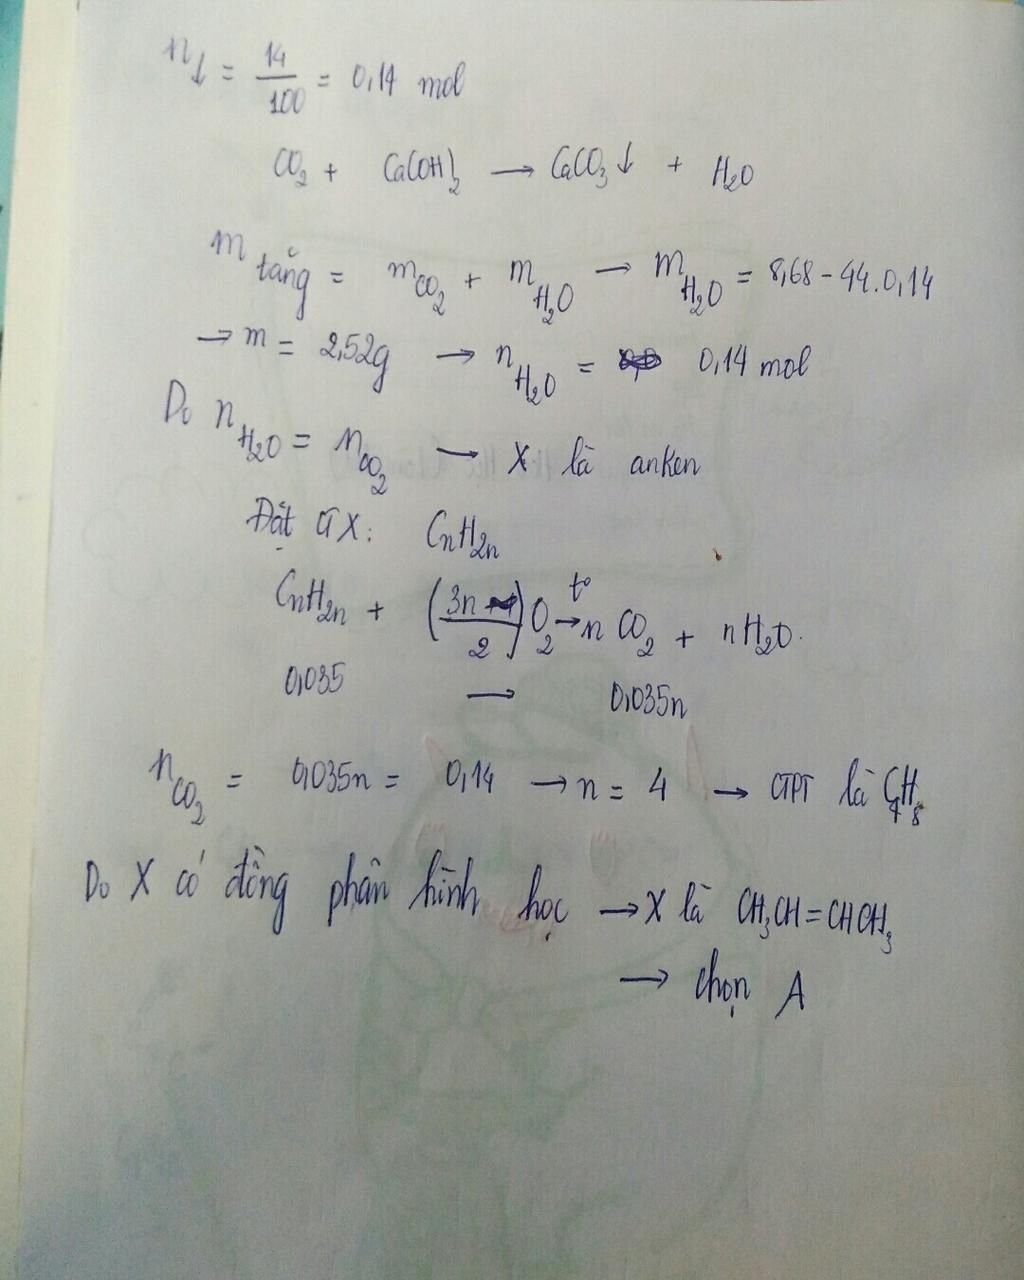 n↓ = 14/100 = 0,14 mol
CO₂ + Ca(OH)₂ → CaCO₃↓ + H₂O
m tăng = mCO₂ + mH₂O → mH₂O = 8,68 - 44.0,14
→ m = 2,52g → nH₂O = 0,14 mol
Do nH₂O = nCO₂ → X là anken
Đặt CT X: CnH₂n
CnH₂n + (3n/2) O₂ →t° n CO₂ + nH₂O.
0,035 → 0,035n
nCO₂ = 0,035n = 0,14 → n = 4 → CTPT là C₄H₈
Do X có đồng phân hình học → X là CH₃CH=CHCH₃
→ chọn A